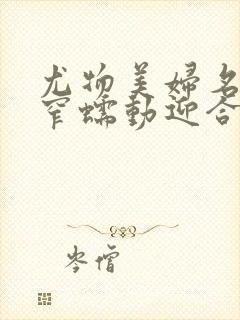 尤物美婦名
窄蠕動迎合
岑僧